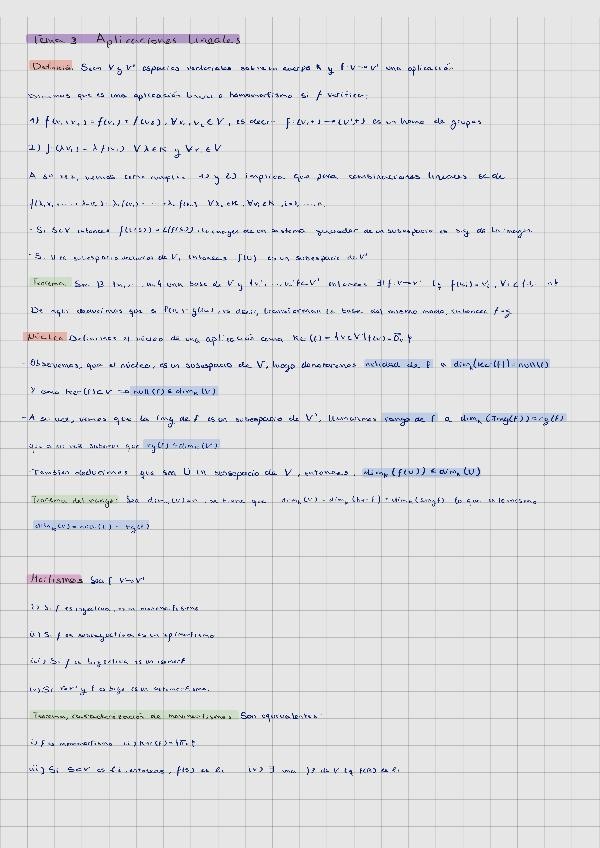 Tema 3 Aplicaciones Lineales
Definición. Sean V y V' espacios vectoriales sobre un cuerpo K y f: V→V' una aplicación
que es una aplicación lineal o homomorfismo si f verifica:
1) f(v₁+v₂) = f(v₁) + f(v₂), ∀v₁,v₂ ∈ V, es decir f: (V,+)→(V',+) es un homo de grupos
2) f(λv₁) = λf(v₁) ∀λ∈K y ∀v₁∈V
A su vez, vemos como cumplir 1) y 2) implica que para combinaciones lineales se da
- Si S⊂V entonces f(L(S)) = L(f(S)), la imagen de un sistema generador de un subespacio es sig de la imagen.
- Si U es subespacio vectorial de V, entonces f(U) es un subespacio de V'
Teorema: Sea B una base de V y entonces ∃! f: V→V' tq f(u_i) = v_i',
De aquí deducimos que si f(u_i) = g(u_i), es decir, transforman la base del mismo modo, entonces f=g
Núcleo Definimos el núcleo de una aplicación como Ker(f) = {v∈V | f(v) = 0_V'}
- Observemos, que el núcleo, es un subespacio de V, luego denotaremos nulidad de f a dim_K(Ker(f)) = null(f)
Y como Ker(f) ⊂ V → null(f) ≤ dim_K(V)
- A su vez, vemos que la Img de f es un subespacio de V', llamaremos rango de f a dim_K(Img(f)) = rg(f)
que a su vez sabemos que rg(f) ≤ dim_K(V)
- También deducimos que sea U un subespacio de V, entonces, dim_K(f(U)) ≤ dim_K(U)
Teorema del rango: Sea dim_K(V) = n, se tiene que dim_K(V) = dim_K(Ker f) + dim_K(Img f) lo que es lo mismo
dim_K(V) = null(f) + rg(f)
Sea f: V→V'
i) Si f es inyectiva, es un monomorfismo
ii) Si f es sobreyectiva es un epimorfismo
iii) Si f es biyectiva es un isomorf
iv) Si V=V' y f es biye es un automorfismo.
Teorema, caracterización de monomorfismos Son equivalentes
i) f es monomorfismo ii) Ker(f) = {0_V}
iii) Si S⊂V es l.i. entonces, f(S) es l.i. iv) ∃ una B de V tq f(B) es l.i.